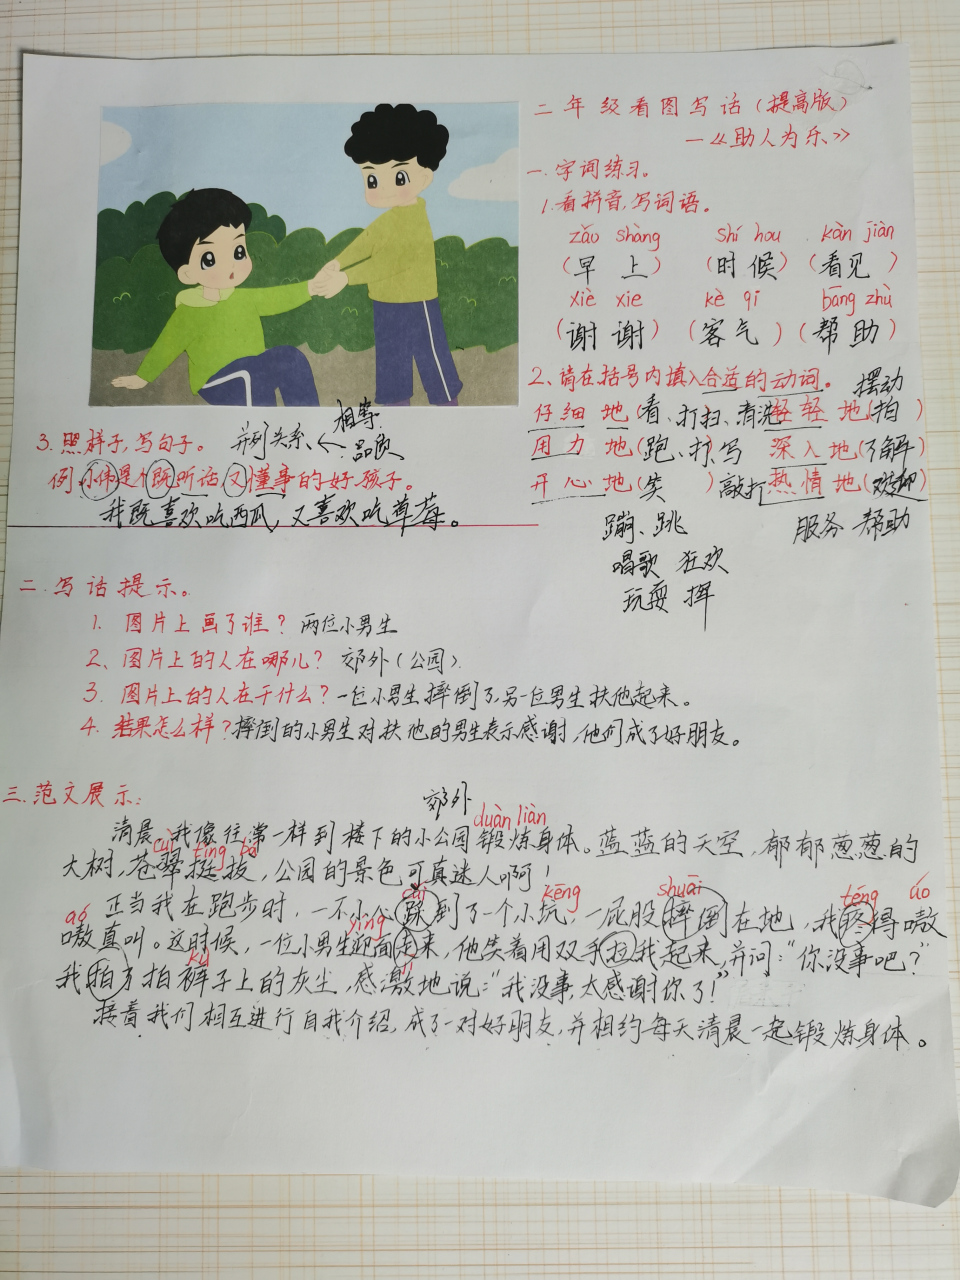 二年级看图写话(提高版)
—《助人为乐》
一.字词练习。
1.看拼音,写词语。
zǎo shàng shí hou kàn jiàn
(早上) (时候) (看见)
xiè xie kè qi bāng zhù
(谢谢) (客气) (帮助)
2、请在括号内填入合适的动词。 摆动
仔细地(看、打扫、清洗 轻轻地(拍)
用力地(跑、打、写 深入地(了解)
开心地(笑) 敲打 热情地(欢迎)
蹦、跳 服务 帮助
唱歌 狂欢
玩耍 挥
相等
3.照样子,写句子。 并列关系、← 品质
例 小伟是个既听话又懂事的好孩子。
我既喜欢吃西瓜,又喜欢吃草莓。
二.写话提示。
1. 图片上画了谁? 两位小男生
2、图片上的人在哪儿? 郊外(公园).
3. 图片上的人在干什么?一位小男生摔倒了,另一位男生扶他起来。
4. 结果怎么样?摔倒的小男生对扶他的男生表示感谢,他们成了好朋友。
三.范文展示:
郊外 duàn liàn
清晨,我像往常一样到楼下的小公园锻炼身体。蓝蓝的天空,郁郁葱葱的
cuì tǐng bá
大树,苍翠挺拔,公园的景色可真迷人啊!
cǎi kēng shuāi téng áo
正当我在跑步时,一不小心踩到了一个小坑,一屁股摔倒在地,我疼得嗷
áo yíng
嗷直叫。这时候,一位小男生迎面走来,他笑着用双手拉我起来,并问:“你没事吧?”
kù jī
我拍了拍裤子上的灰尘,感激地说:“我没事,太感谢你了!”
接着我们相互进行自我介绍,成了一对好朋友,并相约每天清晨一起锻炼身体。